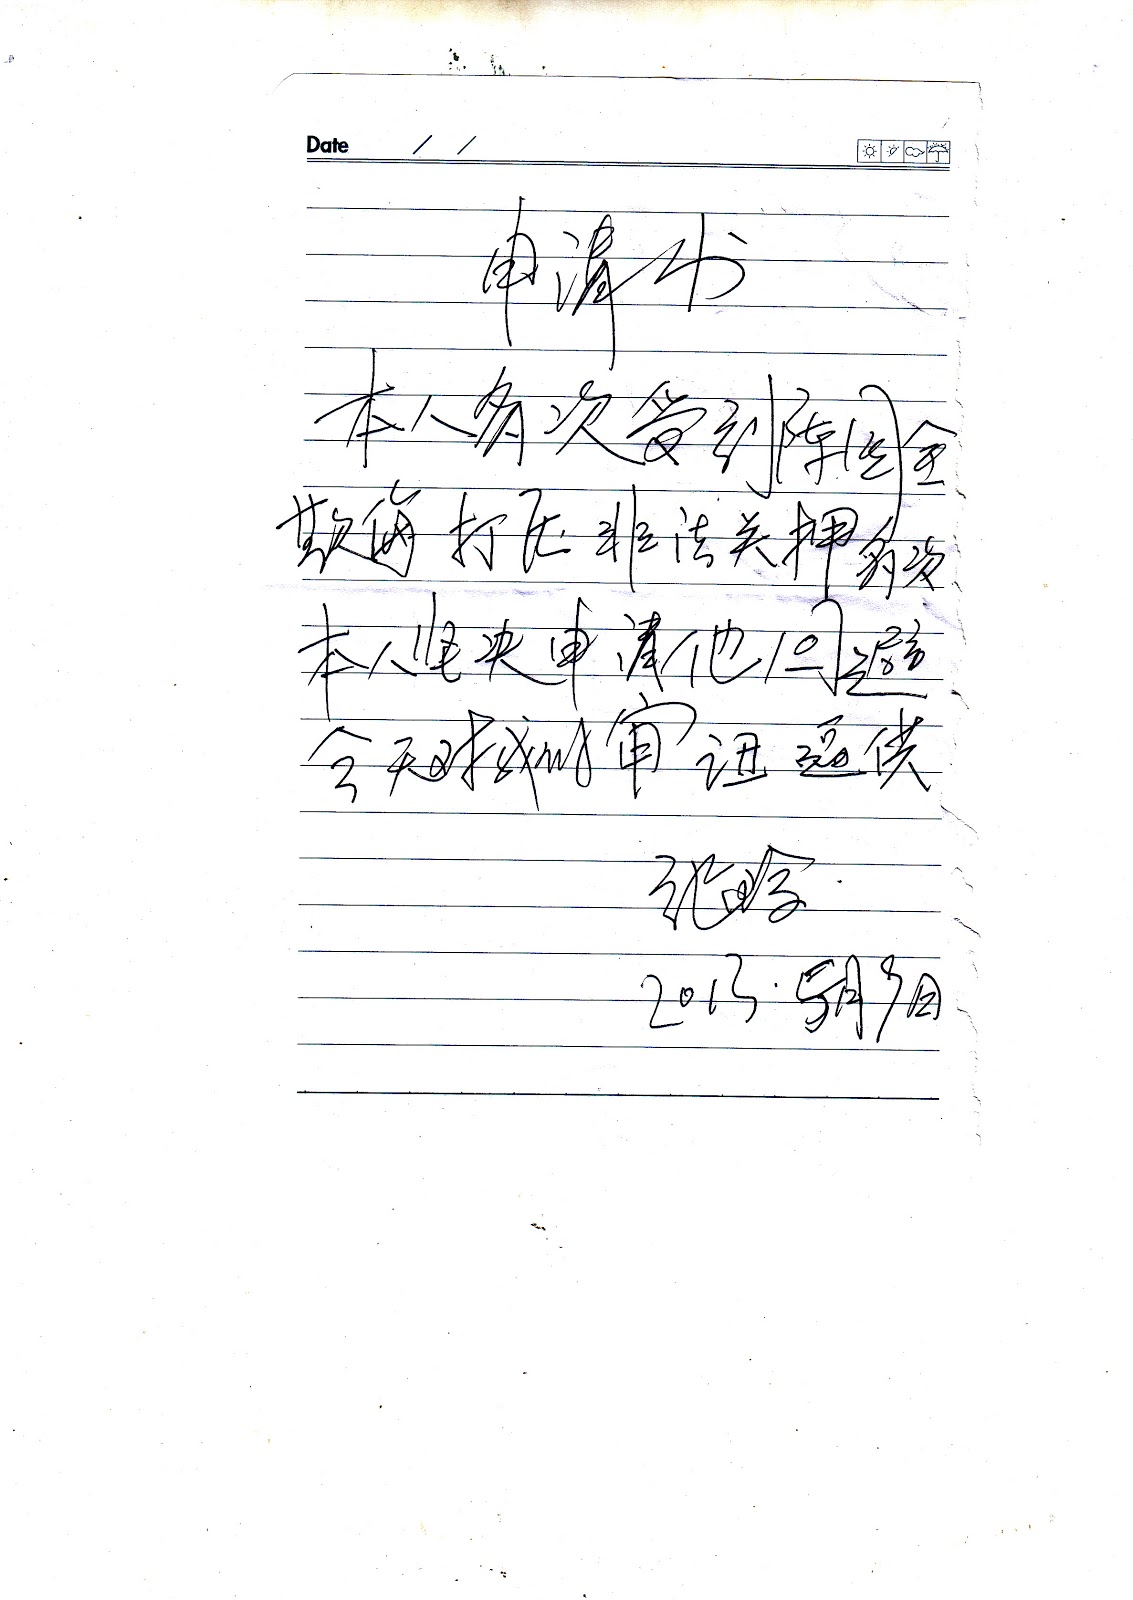 Date / /
申请书
本人多次受到陈国全
欺侮打压非法关押多次
本人坚决申请他回避
今天对我的审讯逼供
张
2013.5月9日